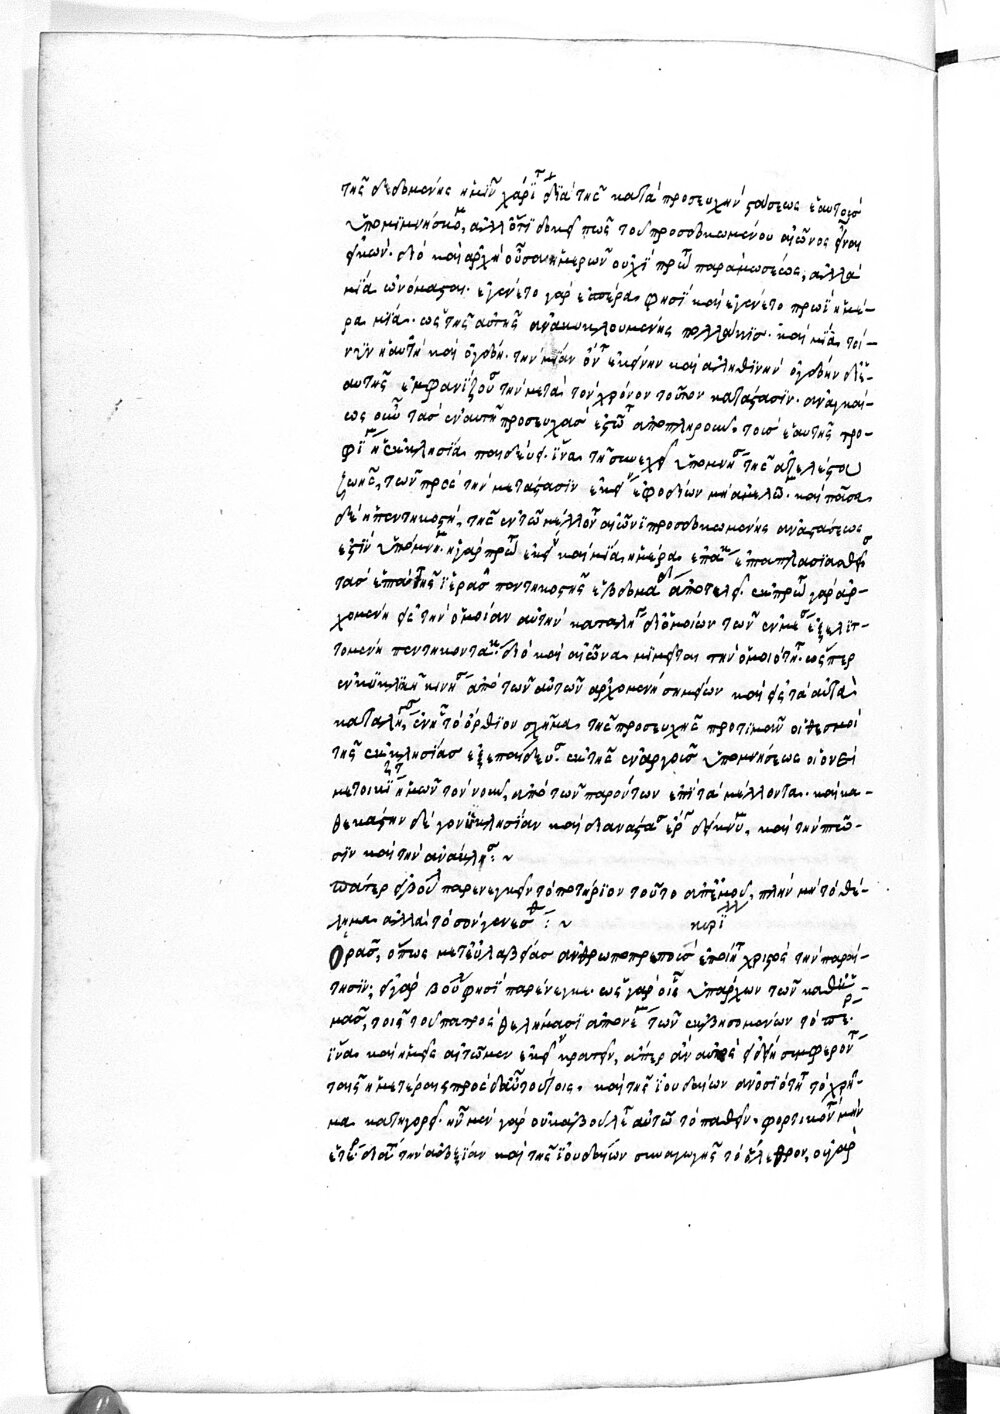 τῆς δεδομένης ἡμῖν χάριτ διὰ τῆς κατὰ προσευχὴν στάσεως ἑαυτοὺσ
ὑπομιμνήσκομ, ἀλλ ὅτι δοκεῖ πως τοῦ προσδοκωμένου αἰῶνος εἶναι
εἰκών. διὸ καὶ ἀρχὴ οὖσα ἡμερῶν οὐχὶ πρώ παρα μωσέως, ἀλλὰ
μία ὠνόμασται. ἐγένετο γὰρ ἑσπέρα φησὶ καὶ ἐγένετο πρωῒ ἡμέ-
ρα μία. ὡς τῆς αὐτῆς ἀνακυκλουμένης πολλάκις. καὶ μία τοί-
νυν ἡ αὐτὴ καὶ ὀγδόη. τὴν μίαν ὄν ἐκείνην καὶ ἀληθινὴν ὀγδόην δι-
αυτῆς ἐμφανίζου τὴν μετὰ τὸν χρόνον τοῦτον κατάστασιν. ἀναγκαί-
ως οὖ τὰσ ἐν αὐτῇ προσευχὰσ ἑστῶ ἀποπληροῦν τοὺσ ἑαυτῆς τρο-
φίμ ἡ ἐκκλησία παιδεύει. ἵνα τῇ συνεχεῖ ὑπομνήσ τῆς ἀτελέστου
ζωῆς, τῶν πρὸς τὴν μετάστασιν ἐκείν ἐφοδίων μὴ ἀμελῶμ. καὶ πᾶσα
δὲ ἡ πεντηκοστὴ, τῆς ἐν τῷ μέλλον αἰῶνι προσδοκωμένης ἀναστάσεως
ἐστὶν ὑπόμνημ. ἡ γὰρ πρώ ἐκείν καὶ μία ἡμέρα ἑπτακ ἑπταπλασιασθεῖσ
τὰσ ἑπτὰ τῆς ἱερᾶσ πεντηκοστῆς ἑβδομάδ ἀποτελεῖ. ἐκ πρώ γὰρ ἀρ-
χομένη εἰς τὴν ὁμοίαν αὐτὴν καταλή δι ὁμοίων τῶν ἐν μέσ ἐξελιτ-
τομένη πεντηκοντακ. διὸ καὶ αἰῶνα μιμεῖται τὴν ὁμοιότητ. ὥσπερ
ἐν κυκλικῇ κινήσ ἀπὸ τῶν αὐτῶν ἀρχομένη σημείων καὶ εἰς τὰ αὐτὰ
καταλήγσ. ἐν ἧ τὸ ὄρθιον σχῆμα τῆς προσευχῆς προτιμᾶν οἱ θεσμοὶ
τῆς ἐκκλησίασ ἐξεπαίδευσ. ἐκ τῆς ἐναργοῦσ ὑπομνήσεως οἱονεὶ
μετοικίζ ἡμῶν τὸν νοῦν, ἀπὸ τῶν παρόντων ἐπὶ τὰ μέλλοντα. καὶ κα-
θεκάστην δὲ γονυκλησίαν καὶ διανάστασ ἔργ δείκνυ, καὶ τὴν πτῶ-
σιν καὶ τὴν ἀνάκλησ:
πάτερ εἰ βούλ παρενεγκεῖν τὸ ποτήριον τοῦτο ἀπ ἐμοῦ, πλὴν μὴ τὸ θέ-
λημα ἀλλὰ τὸ σὸν γενέσθ: κυρίλλ
Ὁρᾶσ, ὅπως μετ εὐλαβείασ ἀνθρωποπρεποῦσ ἐποιή χριστὸς τὴν παραί-
τησιν; εἰ γὰρ βού φησὶ παρένεγκε. ὡς γὰρ οἷ ὑπάρχων τῶν καθ ἡ-
μᾶσ, τοῖς τοῦ πατρὸς θελήμασι ἀπονέμ τῶν ἐκβησομένων τὸ πέρ.
ἵνα καὶ ἡμεῖς αἰτῶμεν ἐκεῖν κρατεῖν, ἅπερ ἂν αὐτὸς εἰδείη συμφέρον
τοῖς ἡμετέροις πρὸς δὲ τούτοις. καὶ τῆς ἰουδαίων ἀνοσιότητ τὸ χρῆ-
μα κατηγορεῖ. ἦν μὲν γὰρ οὐκ ἀβούλη αὐτῷ τὸ παθεῖν. φορτικὸν μὴν
ἑτέρ διὰ τὴν ἀδοξίαν καὶ τῆς ἰουδαίων συναγωγῆς τὸ ὄλεθρον, οὐ γὰρ